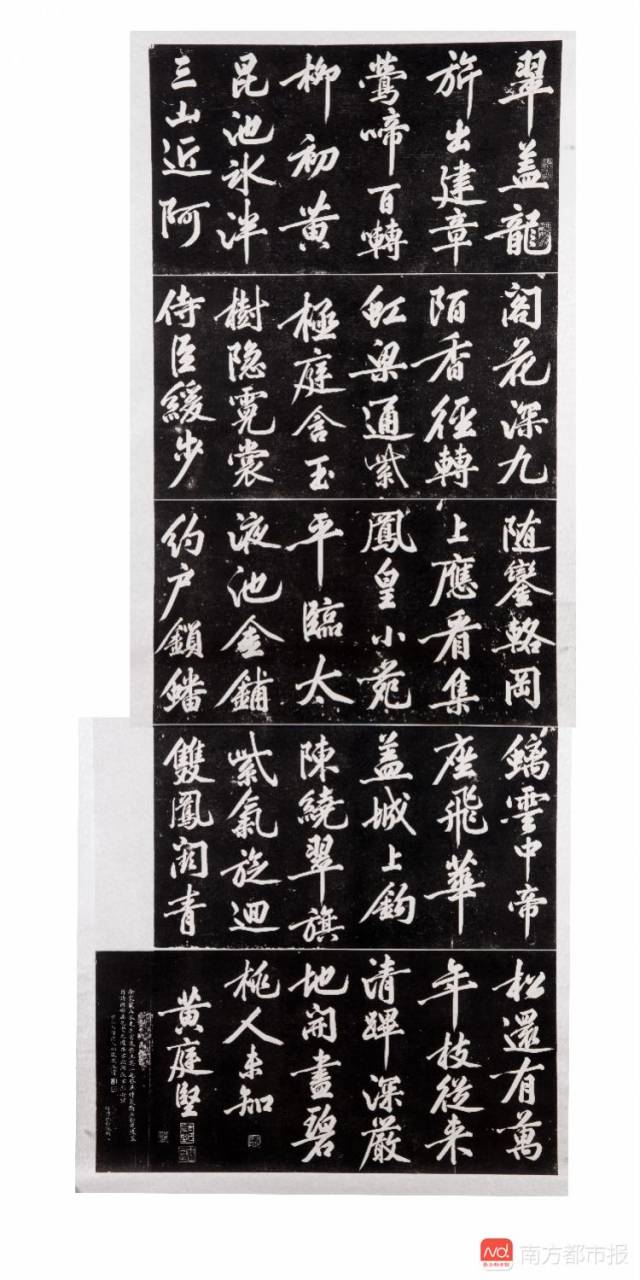 翠盖龍
旂出建章
鶯啼百囀
柳初黄
昆池冰泮
三山近阿
阁花深九
陌香徑轉
虹梁通紫
極庭含玉
樹隐霓裳
侍臣緩步
随鑾輅岡
上應看集
鳳皇小苑
平臨太
液池金鋪
約户鎖蟠
螭雲中帝
座飛華
盖城上鈎
陳繞翠旗
紫氣旋迴
雙鳳阙青
松還有萬
年枝從来
清蹕深嚴
地开盡碧
桃人未知
黄庭坚
南方都市报